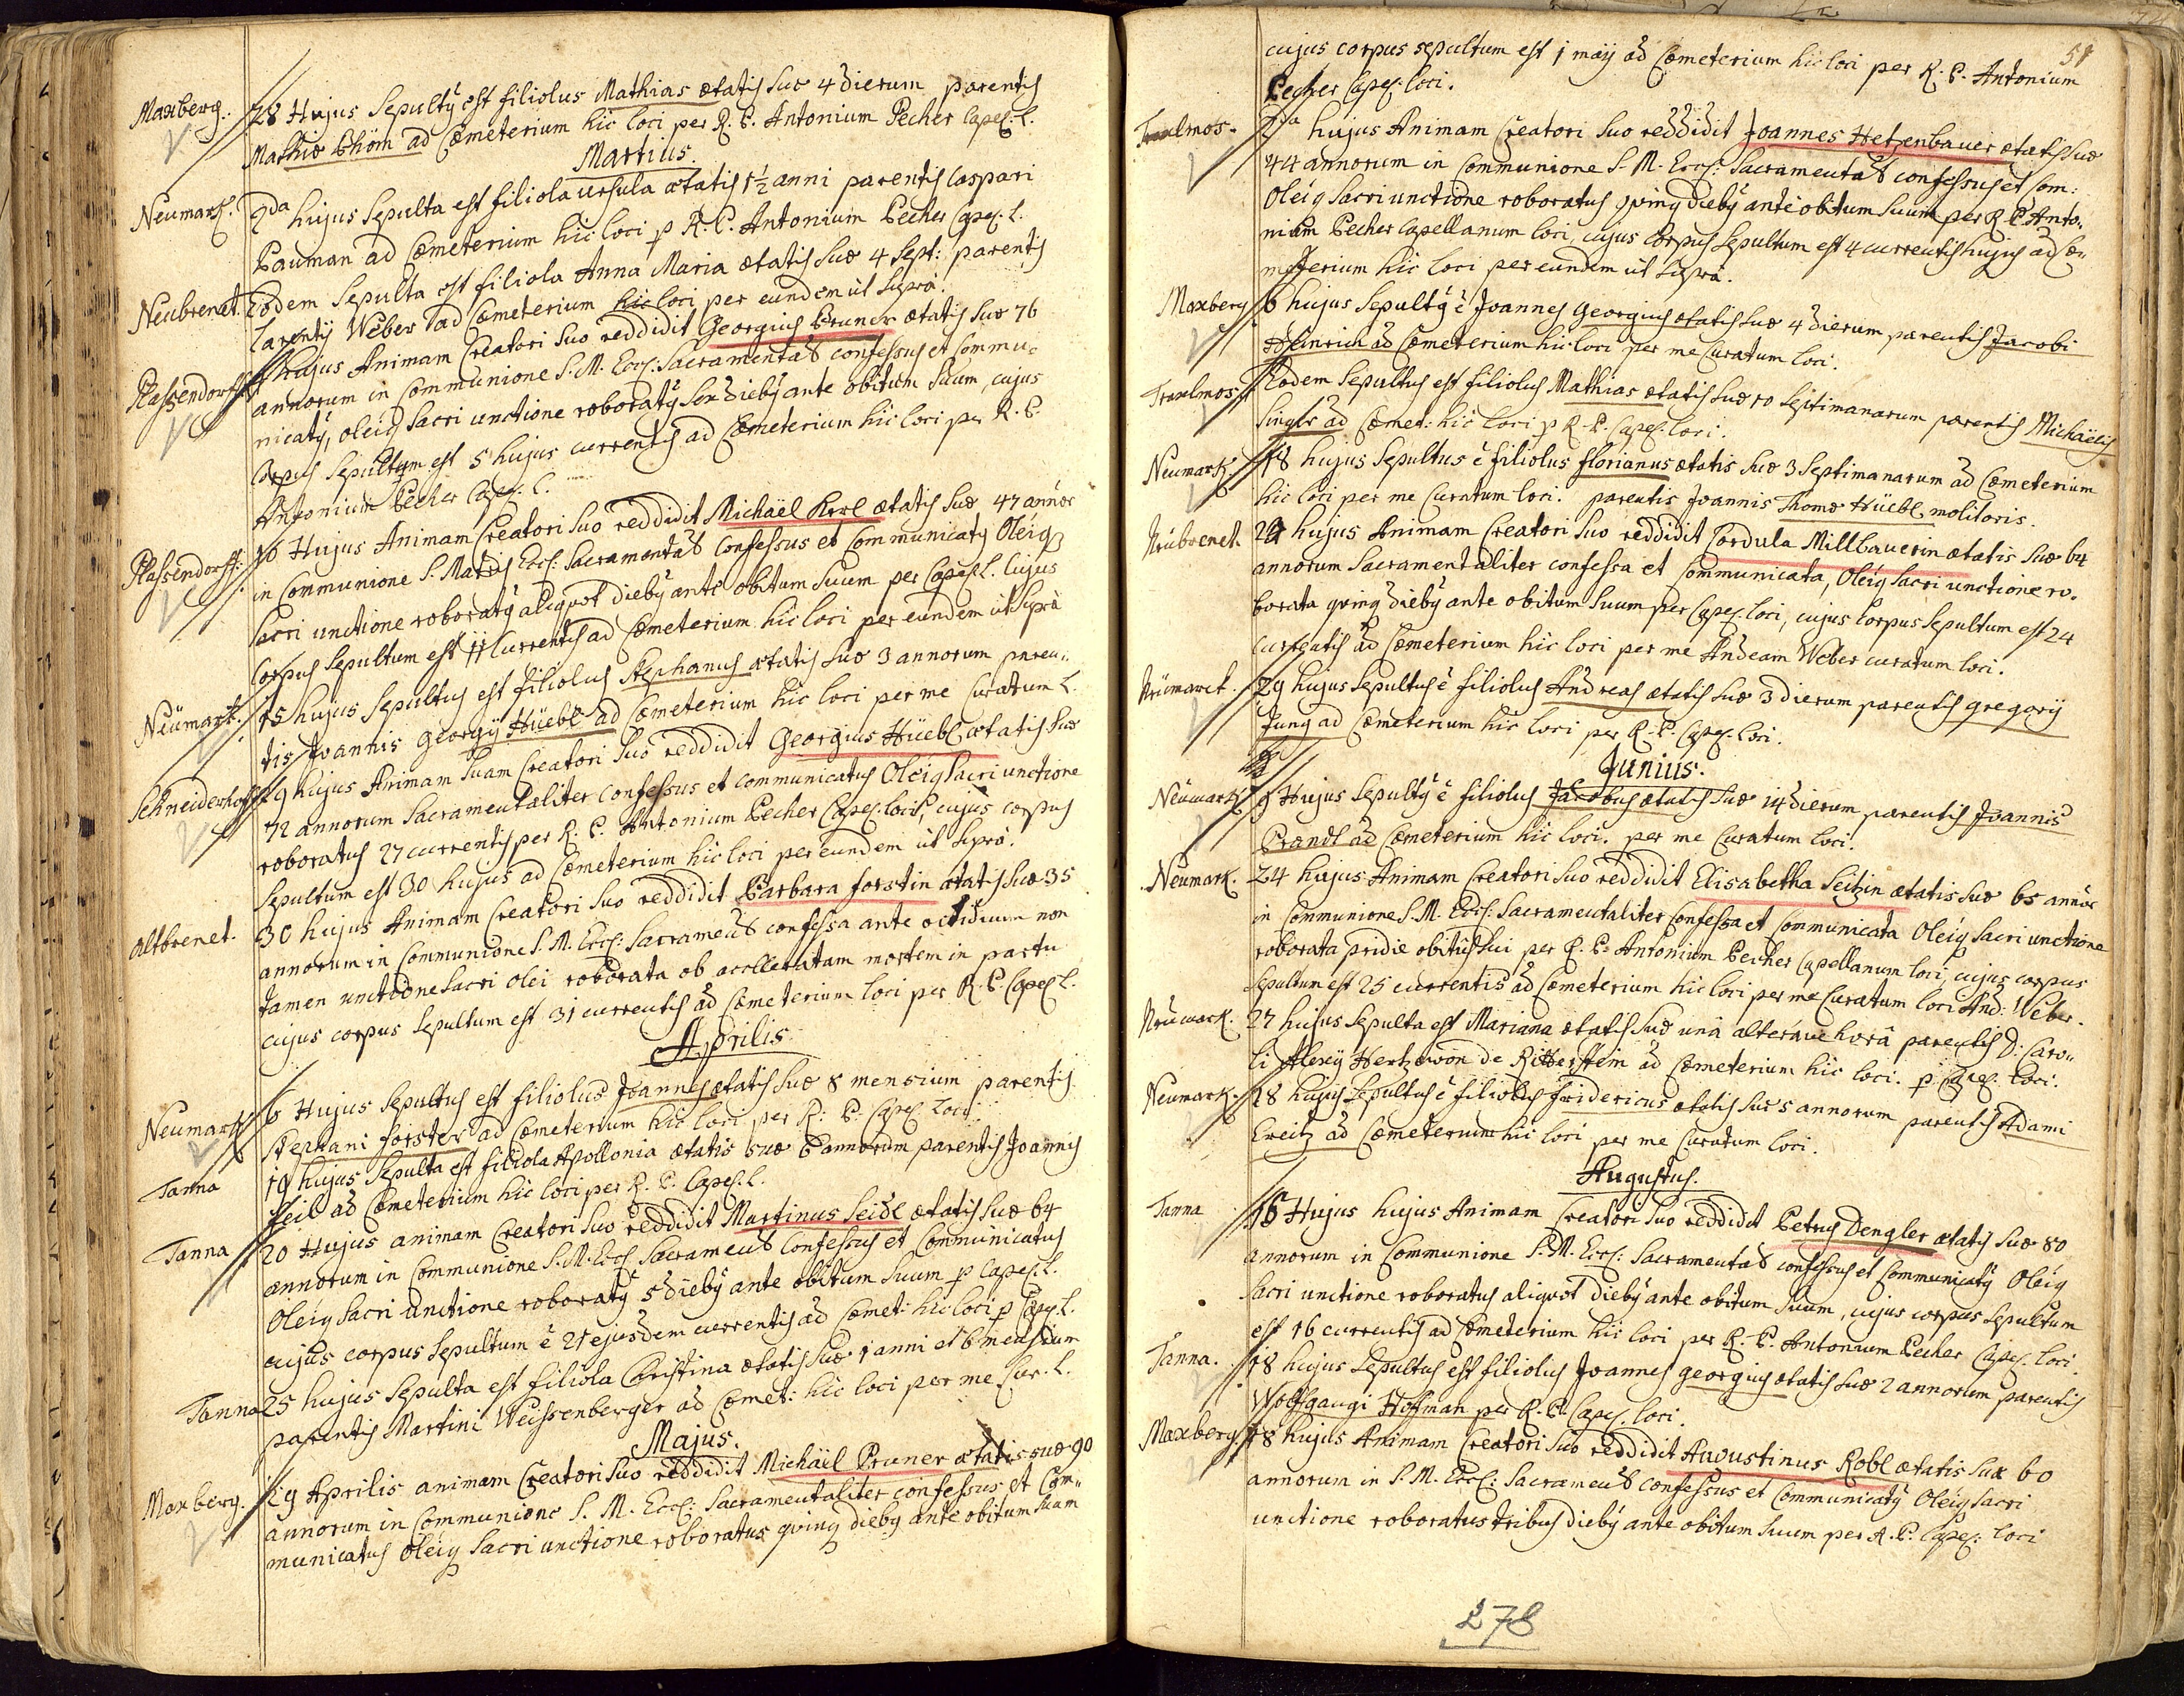 Maxberg. 28 Hujus Sepultq est filiolus Mathias ætatis suæ 4 dierum parentis
Mathiæ Böhm ad Cœmeterium hic loci per R. P. Antonium Pecher Capel: L.
Martius.
Neumark. 2da hujus Sepulta est filiola Ursula ætatis 1 1/2 anni parentis Caspari
Pauman ad Cœmeterium hic loci p R. P. Antonium Pecher Capel. L.
Neubrenet. Eodem Sepulta est filiola Anna Maria ætatis suæ 4 Sept: parentis
Laurentij Weber ad Cœmeterium hic loci per eundem ut supra.
Plassendorff hujus Animam Creatori suo reddidit Georgius Pruner ætatis suæ 76
annorum in Communione S. M. Eccl: Sacramentas confessus et Commu-
nicatq, oleiq Sacri unctione roboratq sex diebq ante obitum suum, cujus
Corpus Sepultum est 5 hujus currentis ad Cœmeterium hic loci per R. P.
Antonium Pecher Capel. L.
Plassendorff: 10 Hujus Animam Creatori suo reddidit Michaël Kerl ætatis suæ 47 annor
in Communione S. Matris Eccl: Sacramentas Confessus et Communicatq Oleiq
Sacri unctione roboratq aliquot diebq ante obitum suum per Capel. L. Cujus
Corpus Sepultum est 11 Currentis ad Cœmeterium hic loci per eundem ut supra
Neümark. 15 hujus Sepultus est filiolus Stephanus ætatis suæ 3 annorum paren-
tis Joannis Georgij Hüebl ad Cœmeterium hic loci per me Curatum L.
Schneiderhoff 29 hujus Animam suam Creatori suo reddidit Georgius Hüebl ætatis suæ
72 annorum Sacramentaliter confessus et communicatus Oleiq Sacri unctione
roboratus 27 currentis per R. P. Antonium Pecher Capel. loci, cujus corpus
Sepultum est 30 hujus ad Cœmeterium hic loci per eundem ut supra.
Altbrenet. 30 hujus Animam Creatori suo reddidit Barbara Forstin ætatis suæ 35
annorum in Communione S. M. Eccl: Sacramens confessa ante octiduum non
tamen unctione Sacri olei roborata ob accelleratam mortem in partu
cujus corpus Sepultum est 31 currentis ad Cœmeterium loci per R. P. Capel L.
Aprilis
Neumark 6 Hujus Sepultus est filiolus Joannes ætatis suæ 8 mensium parentis
Stephani Forster ad Cœmeterium hic loci per R. P. Capel. Loci.
Tanna 19 hujus Sepulta est filiola Apollonia ætatis suæ 6 annorum parentis Joannis
Feil ad Cœmeterium hic loci per R. P. Capel. L.
Tanna 20 Hujus animam Creatori suo reddidit Martinus Seidl ætatis suæ 64
annorum in Communione S. M. Eccl. Sacramens Confessus et Communicatus
Oleiq Sacri unctione roboratq 5 diebq ante obitum suum p Capel. L.
cujus corpus Sepultum ē 21 ejusdem currentis ad Cœmet: hic loci p Capel. L.
Tanna 25 hujus Sepulta est filiola Christina ætatis suæ 1 anni et 6 mensium
parentis Martini Weissenberger ad Cœmet: hic loci per me Cur. L.
Majus.
Maxberg. 29 Aprilis animam Creatori suo reddidit Michaël Pruner ætatis suæ 90
annorum in Communione S. M. Eccl: Sacramentaliter confessus et Com-
municatus Oleiq Sacri unctione roboratus qvinq diebq ante obitum suum
51
cujus corpus sepultum est 1 maij ad Cœmeterium hic loci per R. P. Antonium
Pecher Capel. loci.
Traxlmos. 2da hujus Animam Creatori suo reddidit Joannes Hetzenbauer ætatis suæ
44 annorum in Communione S. M. Eccl: Sacramentas confessus et Com:
Oleiq Sacri unctione roboratus qvinq diebq ante obitum suum per R. P. Anto-
nium Pecher Capellanum loci, cujus Corpus Sepultum est 4 currentis hujus ad Cœ-
meterium hic loci per eundem ut supra.
Maxberg 6 hujus Sepultq ē Joannes Georgius ætatis suæ 4 dierum, parentis Jacobi
Heinrich ad Cœmeterium hic loci per me Curatum loci.
Traxlmos. Eodem Sepultus est filiolus Mathias ætatis suæ 10 Septimanarum parentis Michaëlis
Singer ad Cœmet: hic loci p R. P. Capel. loci.
Neumark. 18 hujus Sepultus ē filiolus Florianus ætatis suæ 3 Septimanarum ad Cœmeterium
hic loci per me Curatum loci. parentis Joannis Thomæ Hüebl molitoris.
Neübrenet. 22 hujus Animam Creatori suo reddidit Cordula Millbauerin ætatis suæ 64
annorum Sacramentaliter confessa et Communicata, Oleiq Sacri unctione ro-
borata qvinq diebq ante obitum suum per Capel. loci, cujus Corpus Sepultum est 24
currentis ad Cœmeterium hic loci per me Andeam Weber curatum loci.
Neümarck. 29 hujus Sepultus ē filiolus Andreas ætatis suæ 3 dierum parentis Gregorij
Jung ad Cœmeterium hic loci per R. P. Capel. loci.
Junius.
Neümark 9 Hujus Sepultq ē filiolus Jacobus ætatis suæ 14 dierum parentis Joannis
Prandl ad Cœmeterium hic loci. per me Curatum loci.
Neumark. 24 hujus Animam Creatori suo reddidit Elisabetha Seitzin ætatis suæ 65 annor
in Communione S. M. Eccl: Sacramentaliter Confessa et Communicata Oleiq Sacri unctione
roborata pridie obitus sui per R. P. Antonium Pecher Capellanum loci, cujus corpus
Sepultum est 25 currentis ad Cœmeterium hic loci per me Curatum loci And: Weber.
Neümarck. 27 hujus Sepulta est Mariana ætatis suæ unâ alterâve horâ parentis D: Caro-
li Alexij Hertzwon de Ritterstein ad Cœmeterium hic loci. p Capel. loci.
Neumark. 28 hujus Sepultus ē filiolus Fridericus ætatis suæ 5 annorum parentis Adami
Greitz ad Cœmeterium hic loci per me Curatum loci.
Augustus.
Tanna 15 Hujus hujus Animam Creatori suo reddidit Petrus Dengler ætatis suæ 80
annorum in Communione S. M. Eccl: Sacramentas confessus et Communicatq Oleiq
Sacri unctione roboratus aliquot diebq ante obitum suum, cujus corpus Sepultum
est 16 currentis ad Cœmeterium hic loci per R. P. Antonium Pecher Capel. loci.
Tanna. 18 hujus Sepultus est filiolus Joannes Georgius ætatis suæ 2 annorum parentis
Wolfgangi Hoffman per R. P. Capel. loci.
Maxberg 18 hujus Animam Creatori suo reddidit Augustinus Robl ætatis suæ 60
annorum in S. M. Eccl: Sacramens confessus et Communicatq Oleiq Sacri
unctione roboratus tribus diebq ante obitum suum per R. P. Capel: loci
278